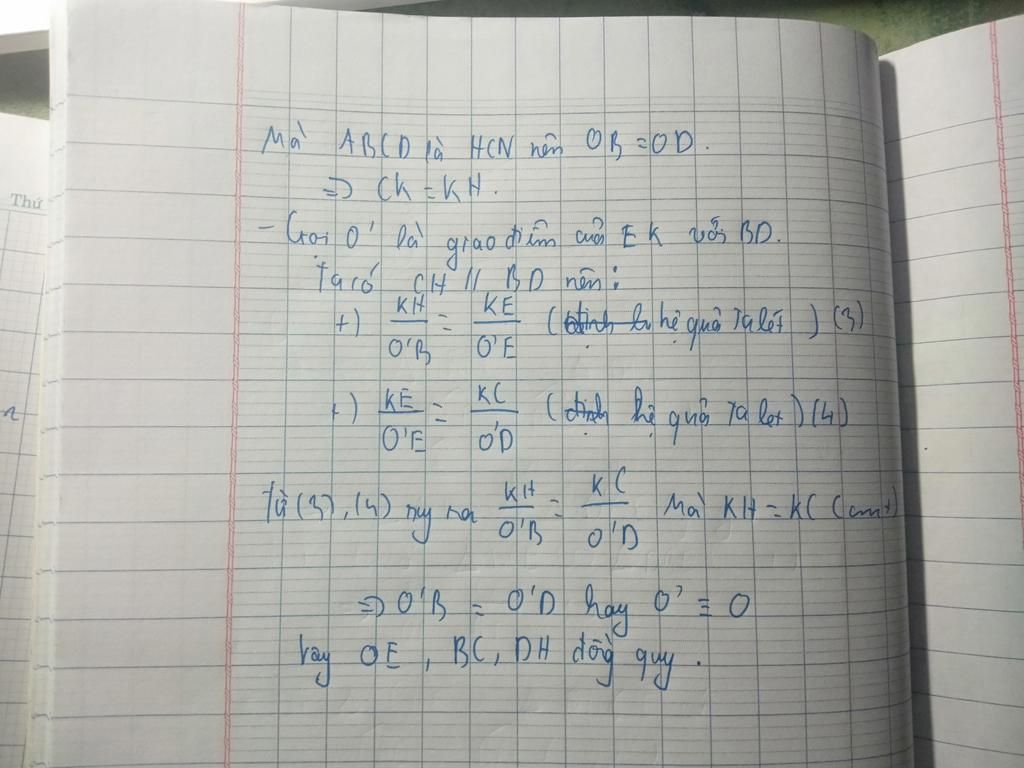 Thứ
Mà ABCD là HCN nên OB = OD.
=> CK = KH.
- Gọi O' là giao điểm của EK với BD.
Ta có CH // BD nên:
+) KH/O'B = KE/O'E (hệ quả Ta lét) (3)
+) KE/O'E = KC/O'D (hệ quả Ta let) (4)
Từ (3), (4) suy ra KH/O'B = KC/O'D Mà KH = KC (cmt)
=> O'B = O'D hay O' ≡ O
Vay OE, BC, DH đồng quy.